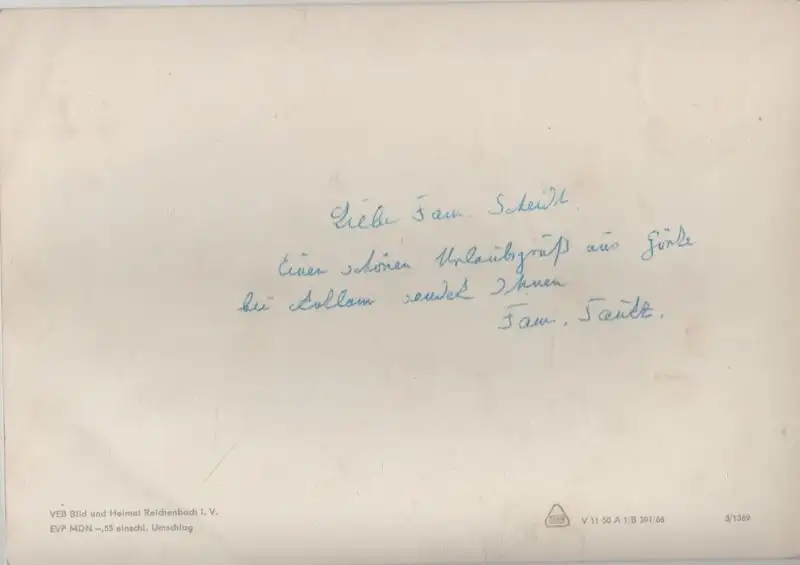 Liebe Fam. Scheidt.
Einen schönen Urlaubsgruß aus Görke
bei sendet Ihnen
Fam.
VEB Bild und Heimat Reichenbach i. V.
EVP MDN –,55 einschl. Umschlag
V 11 50 A 1/B 391/66
3/1369